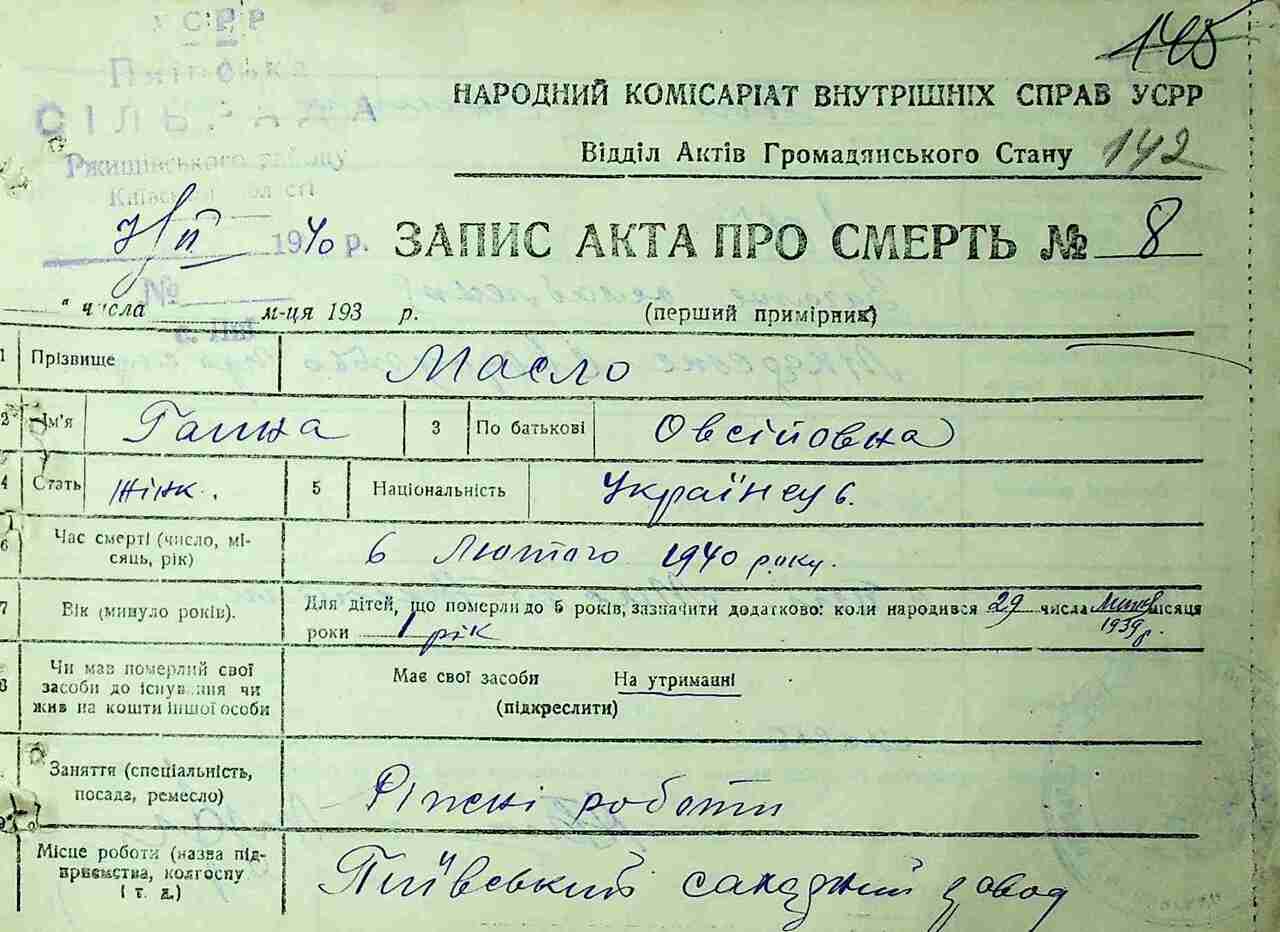 УСРР
СІЛЬРАДА
Ржищівського району
Київської області
145
НАРОДНИЙ КОМІСАРІАТ ВНУТРІШНІХ СПРАВ УСРР
Відділ Актів Громадянського Стану 142
7/ІІ 1940 р. ЗАПИС АКТА ПРО СМЕРТЬ № 8
№
" числа м-ця 193 р. (перший примірник)
1 Прізвище Масло
2 Ім'я Ганна 3 По батькові Овсіповна
4 Стать жінк. 5 Національність
6 Час смерті (число, мі-
сяць, рік) 6 Лютого 1940 року.
7 Вік (минуло років). Для дітей, що померли до 5 років, зазначити додатково: коли народився 29 числа місяця
роки 1 рік 1939 р.
8 Чи мав померлий свої
засоби до існування чи
жив на кошти іншої особи
Має свої засоби На утриманні
(підкреслити)
9 Заняття (спеціальність,
посада, ремесло) Ріжні роботи
Місце роботи (назва під-
приємства, колгоспу
і т. д.) Пиївський завод